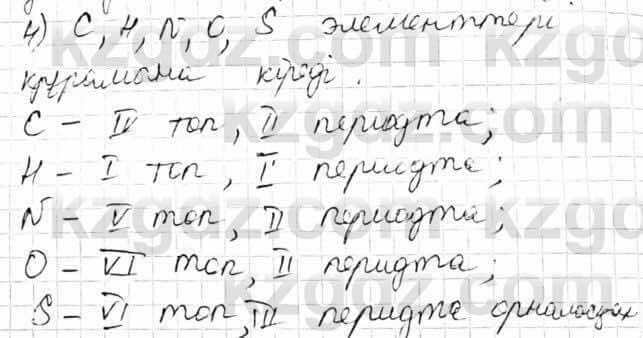 4) C, H, N, O, S элементтері
құрамына кіреді.
C - IV топ, II периодта;
H - I топ, I периодта;
N - V топ, II периодта;
O - VI топ, II перидта;
S - VI топ, III перидта орналасқан